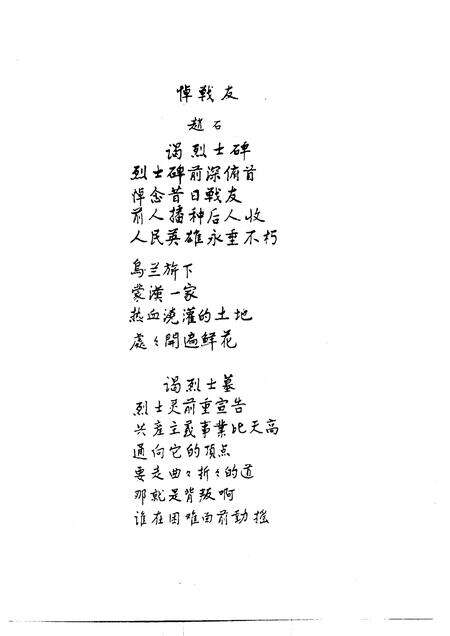 悼戰友
趙石
谒烈士碑
烈士碑前深俯首
悼念昔日戰友
前人播种后人收
人民英雄永垂不朽
烏兰旂下
蒙漢一家
热血澆灌的土地
處々開遍鮮花
谒烈士墓
烈士灵前重宣告
兴産主義事業比天高
通向它的頂点
要走曲々折々的道
那就是背叛啊
谁在困难面前動摇